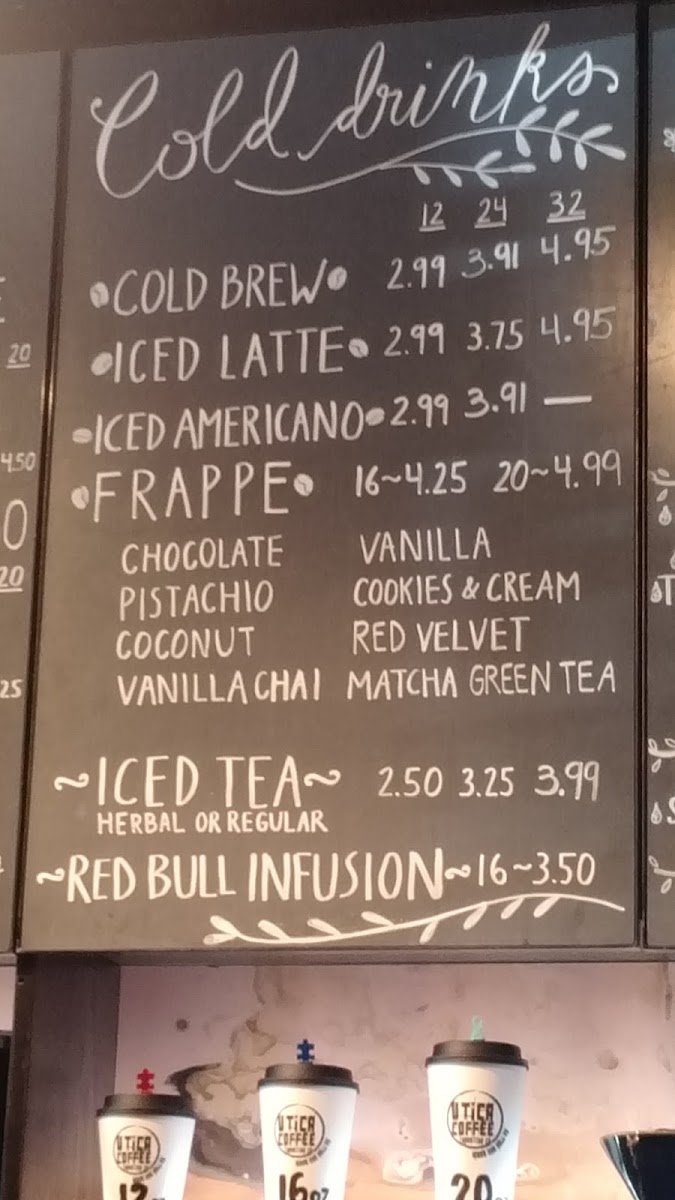 Cold drinks
12 24 32
COLD BREW 2.99 3.91 4.95
ICED LATTE 2.99 3.75 4.95
ICED AMERICANO 2.99 3.91 —
FRAPPE 16~4.25 20~4.99
CHOCOLATE VANILLA
PISTACHIO COOKIES & CREAM
COCONUT RED VELVET
VANILLA CHAI MATCHA GREEN TEA
~ICED TEA~ 2.50 3.25 3.99
HERBAL OR REGULAR
~RED BULL INFUSION~16~3.50
20
4.50
0
20
25
UTICA
COFFEE
12
UTICA
COFFEE
16oz
UTICA
COFFEE
20